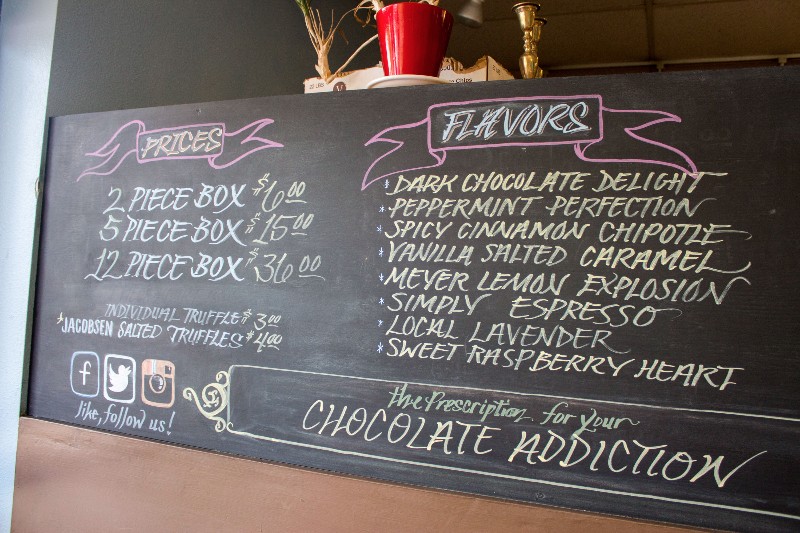 PRICES
2 PIECE BOX $6.00
5 PIECE BOX $15.00
12 PIECE BOX $36.00
INDIVIDUAL TRUFFLE $3.00
*JACOBSEN SALTED TRUFFLES $4.00
f
like, follow us!
FLAVORS
*DARK CHOCOLATE DELIGHT
*PEPPERMINT PERFECTION
*SPICY CINNAMON CHIPOTLE
*VANILLA SALTED CARAMEL
*MEYER LEMON EXPLOSION
*SIMPLY ESPRESSO
*LOCAL LAVENDER
*SWEET RASPBERRY HEART
the Prescription for your
CHOCOLATE ADDICTION